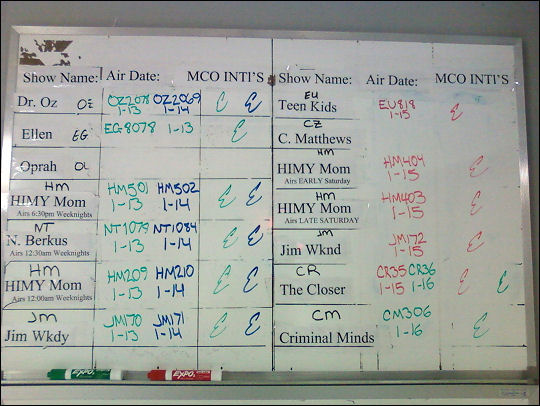 Show Name: Air Date: MCO INTI'S
Dr. Oz OZ OZ2078 OZ2069 E E
1-13 1-14
Ellen EG EG8078 1-13 E
Oprah OL
HM
HIMY Mom HM501 HM502 E E
Airs 6:30pm Weeknights 1-13 1-14
NT
N. Berkus NT1079 NT1084 E E
Airs 12:30am Weeknights 1-13 1-14
HM
HIMY Mom HM209 HM210 E E
Airs 12:00am Weeknights 1-13 1-14
JM
Jim Wkdy JM170 JM171 E E
1-13 1-14
Show Name: Air Date: MCO INTI'S
EU
Teen Kids EU818 E
1-15
CZ
C. Matthews
HM
HIMY Mom HM404 E
Airs EARLY Saturday 1-15
HM
HIMY Mom HM403 E
Airs LATE SATURDAY 1-15
JM
Jim Wknd JM172 E
1-15
CR
The Closer CR35 CR36 E E
1-15 1-16
CM
Criminal Minds CM306 E
1-16
EXPO EXPO